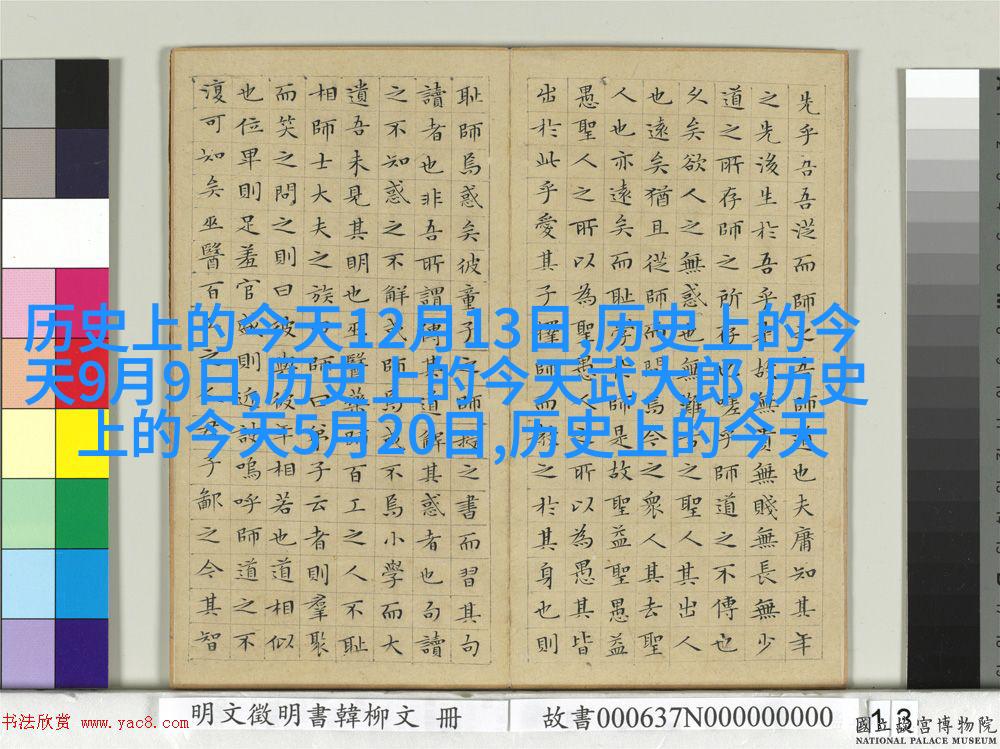 先乎吾吾從而師之吾師道也夫庸知其年
之先後生於吾乎是故無貴無賤無長無少
道之所存師之所存也嗟乎師道之不傳也
久矣欲人之無惑也無難古之聖人其出人
也遠矣猶且從師而問焉今之衆人其去聖
人也亦遠矣而恥學於師是故聖益聖愚益
愚聖人之所以為聖愚人之所以為愚其皆
出於此乎愛其子擇師而教之於其身也則
恥師焉惑矣彼童子之師授之書而習其句
讀者也非吾所謂傳其道解其惑者也句讀
之不知惑之不解或師焉或不焉小學而大
遺吾未見其明也巫醫藥師百工之人不恥
相師士大夫之族曰師曰弟子云者則羣聚
而笑之問之則曰彼與彼年相若也道相似
也位卑則足羞官盛則近諛嗚呼師道之不
復可知矣巫醫百工之人君子鄙之今其智
历史上的今天12月13日,历史上的今
天9月9日,历史上的今天武大郎,历史
上的今天5月20日,历史上的今天
书法欣赏 www.yac8.com
明文徵明書韓柳文 冊
故書000637N000000000
13
國立故宮博物院
NATIONAL PALACE MUSEUM